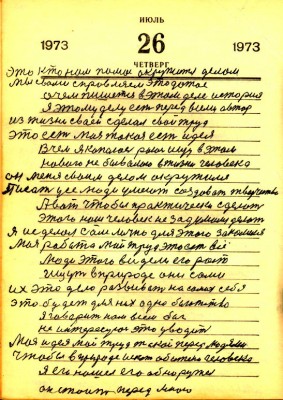 ИЮЛЬ
1973 26 1973
ЧЕТВЕРГ
Это кто нам помог окружится делом
Мы с вами справляем это дотое
О чем пишется в этом деле история
Я этому делу есть перед всеми автор
из жизни своей сделал свой труд
Это есть моя такая есть идея
В чем я копаюсь рою ищу в этом
нового не бывалого в жизни человека
он меня своим делом окружил
Писать усе люди умеют создовать творчество
А вот чтобы практически сделать
Этого наш человек не задумали делать
Я и сделал сам лично для этого занимаюсь
Моя работа мой труд это есть всё
Люди этого видели его рост
ищут в природе они сами
их это дело развивать на самих себя
это будет для них одно богатство
Я говорит нам всем Бог
не интересуюсь это уводит
Моя идея мой труд такой перед людями
Чтобы в природе искать
Я его нашел его обнаружил
он стоит перед мною